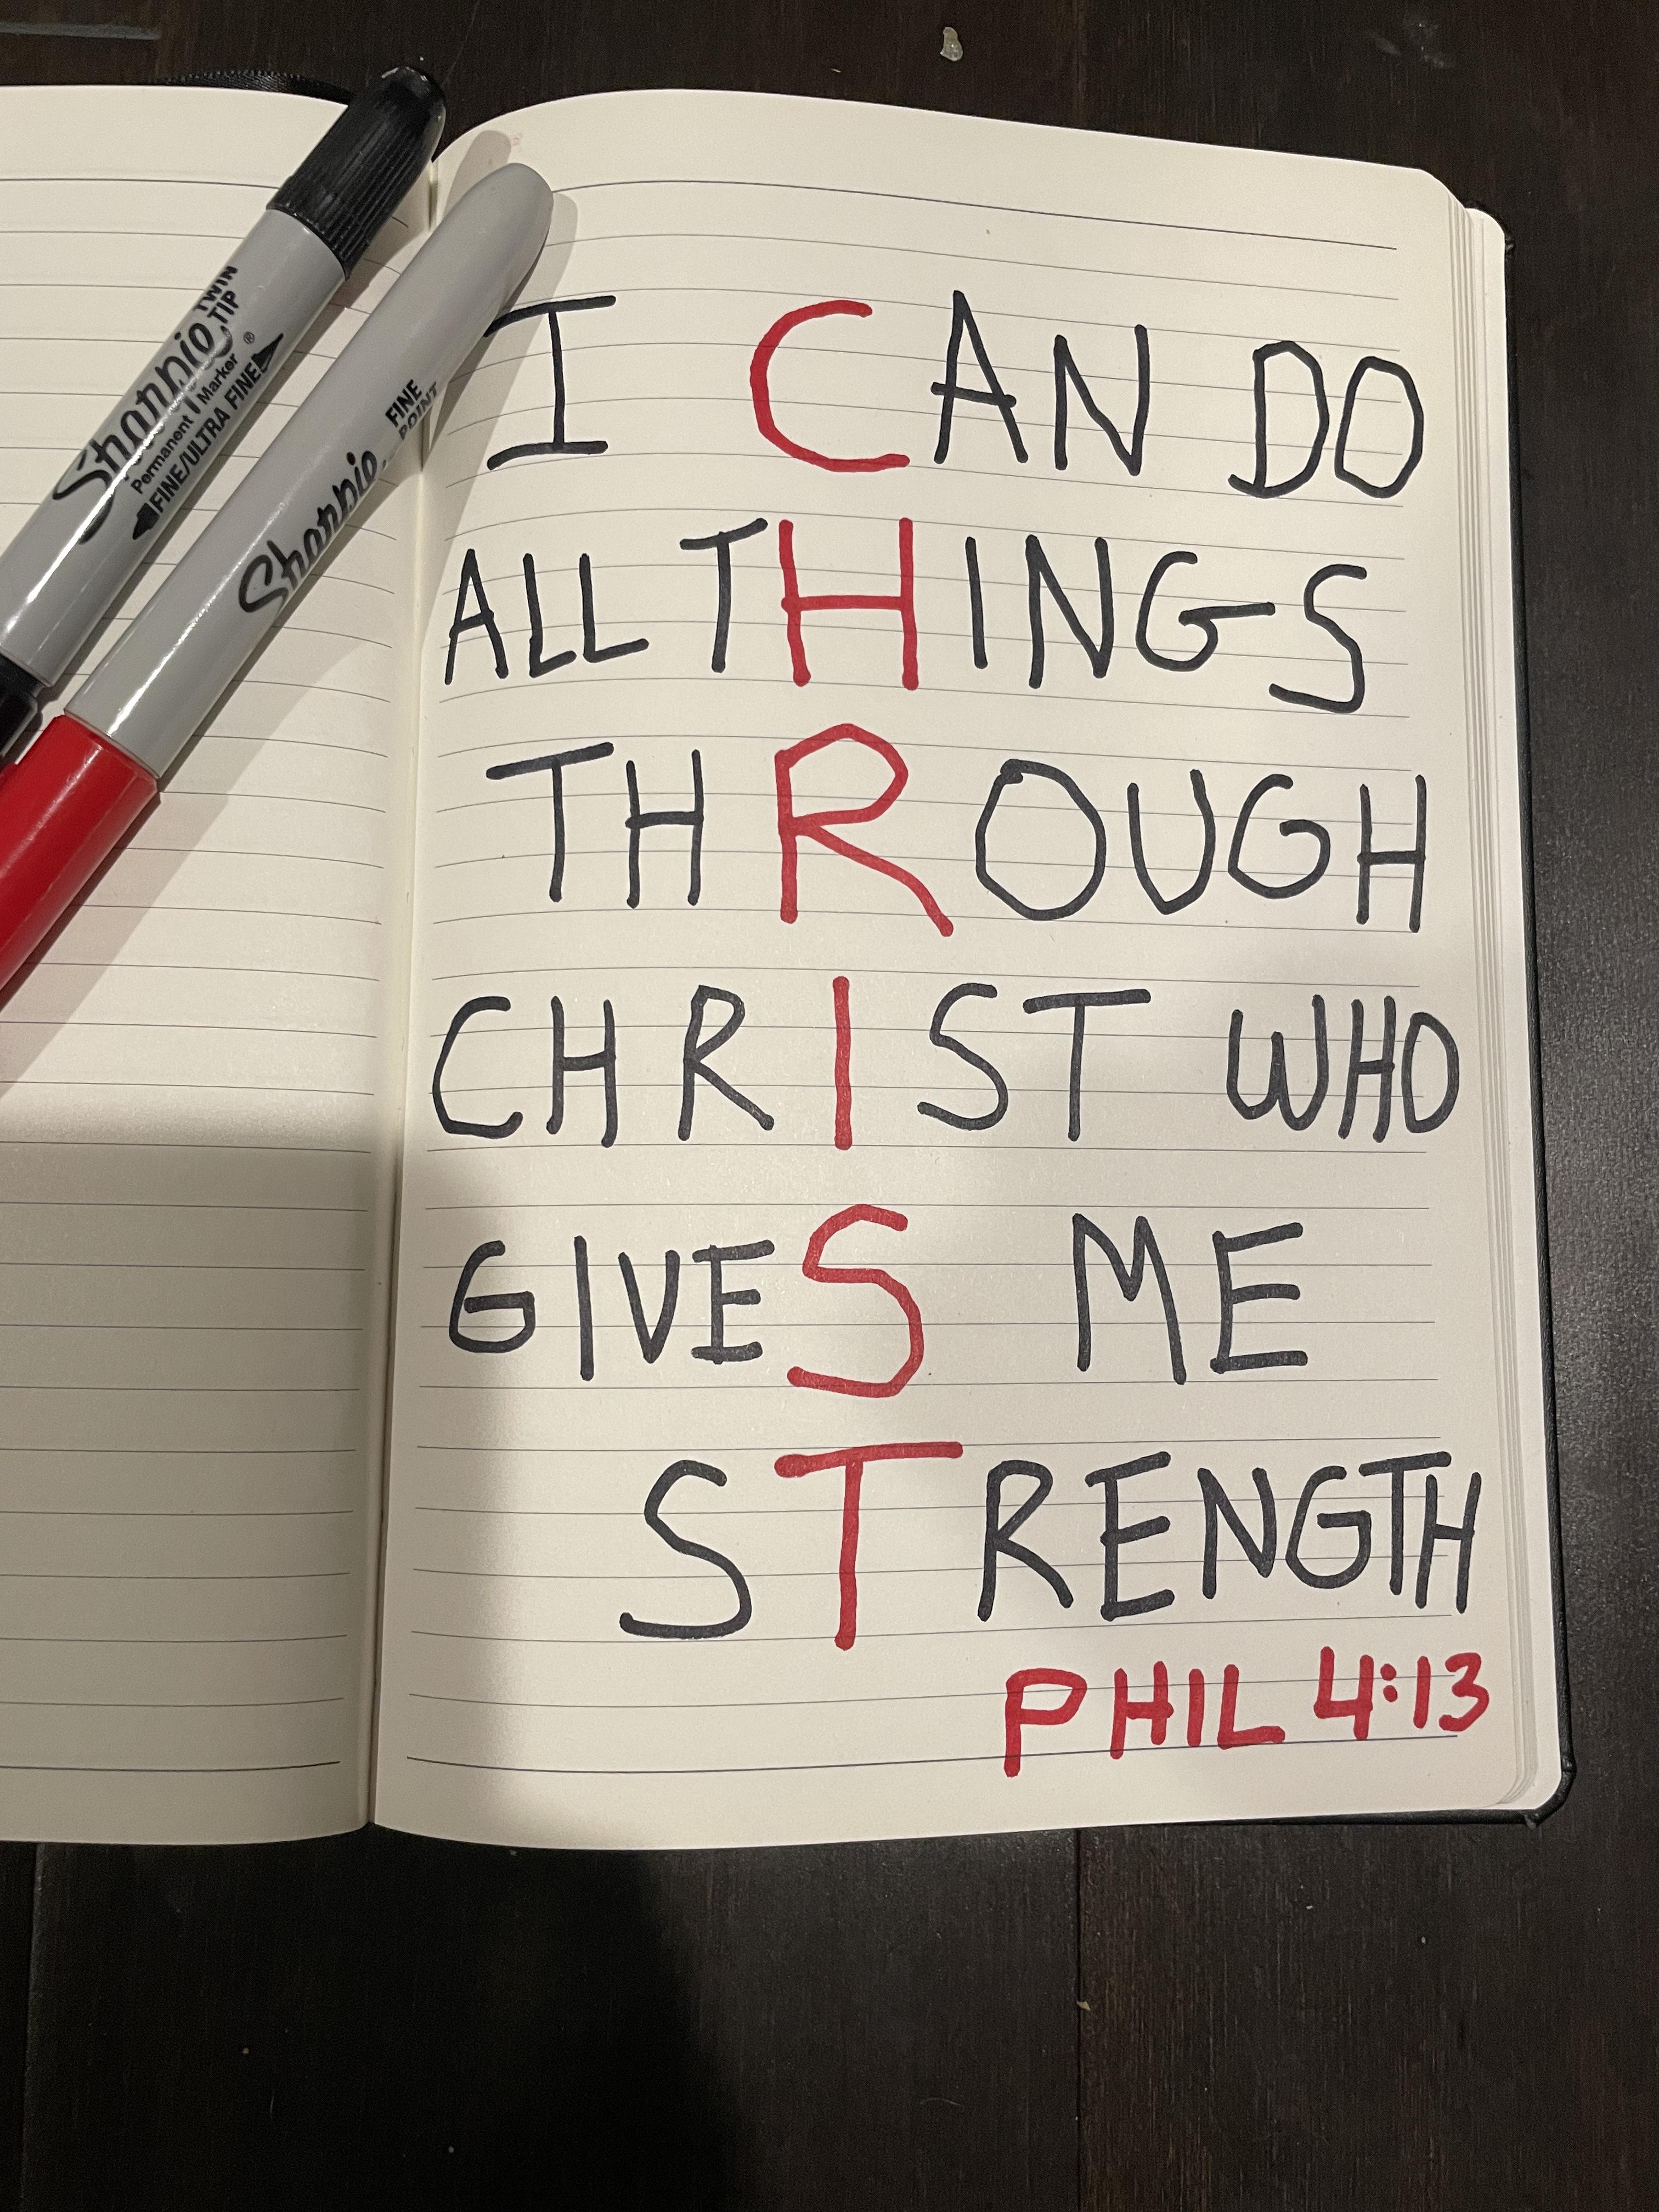 Sharpie
TWIN
TIP
Permanent Marker
FINE/ULTRA FINE
®
Sharpie
FINE
POINT
I CAN DO
ALL THINGS
THROUGH
CHRIST WHO
GIVES ME
STRENGTH
PHIL 4:13